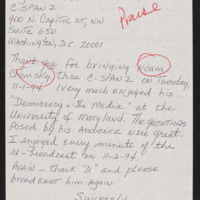 C-SPAN 2
400 N. CAPITOL ST, NW
SUITE 650
WASHINGTON, D.C. 20001
Praise
THANK YOU FOR BRINGING NOAM
CHOMSKY THRU C-SPAN 2 ON TUESDAY,
11-1-94. I VERY MUCH ENJOYED HIS
"DEMOCRACY & THE MEDIA" AT THE
UNIVERSITY OF MARYLAND. THE QUESTIONS
POSED BY HIS AUDIENCE WERE GREAT.
I ENJOYED EVERY MINUTE OF THE
RE-BROADCAST ON 11-2-94.
AGAIN - THANK "U" AND PLEASE
BROADCAST HIM AGAIN.
SINCERELY